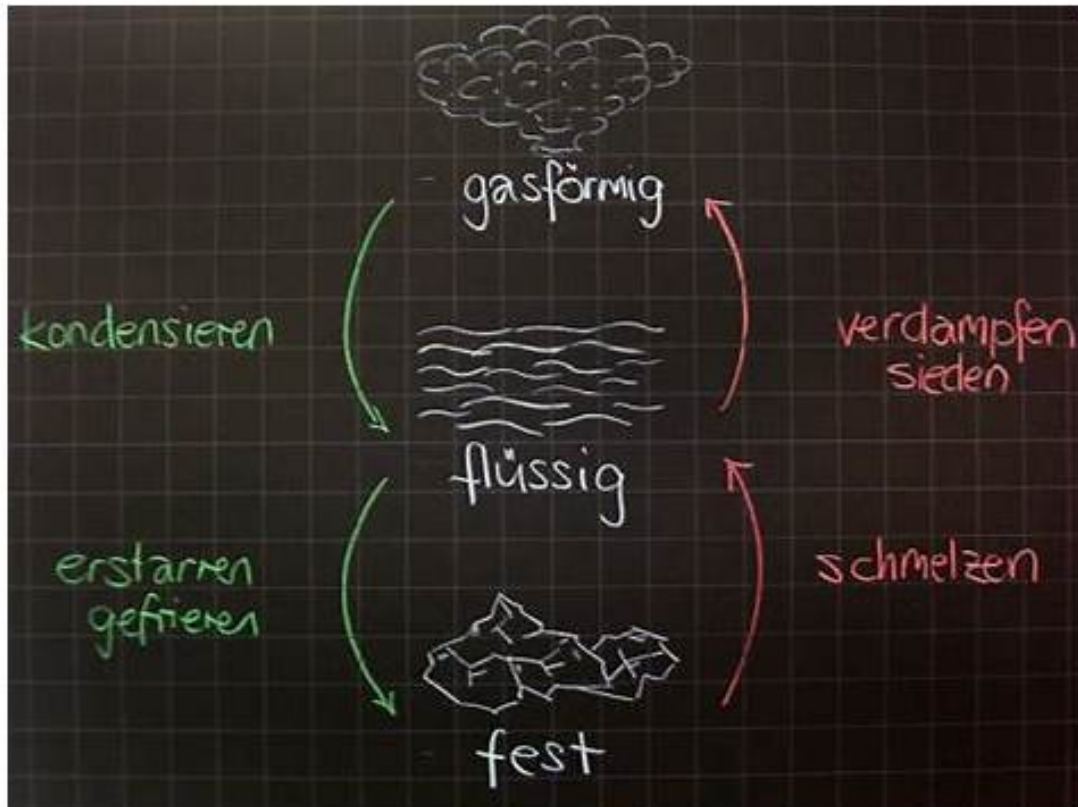 gasförmig
kondensieren
verdampfen
sieden
flüssig
erstarren
gefrieren
schmelzen
fest